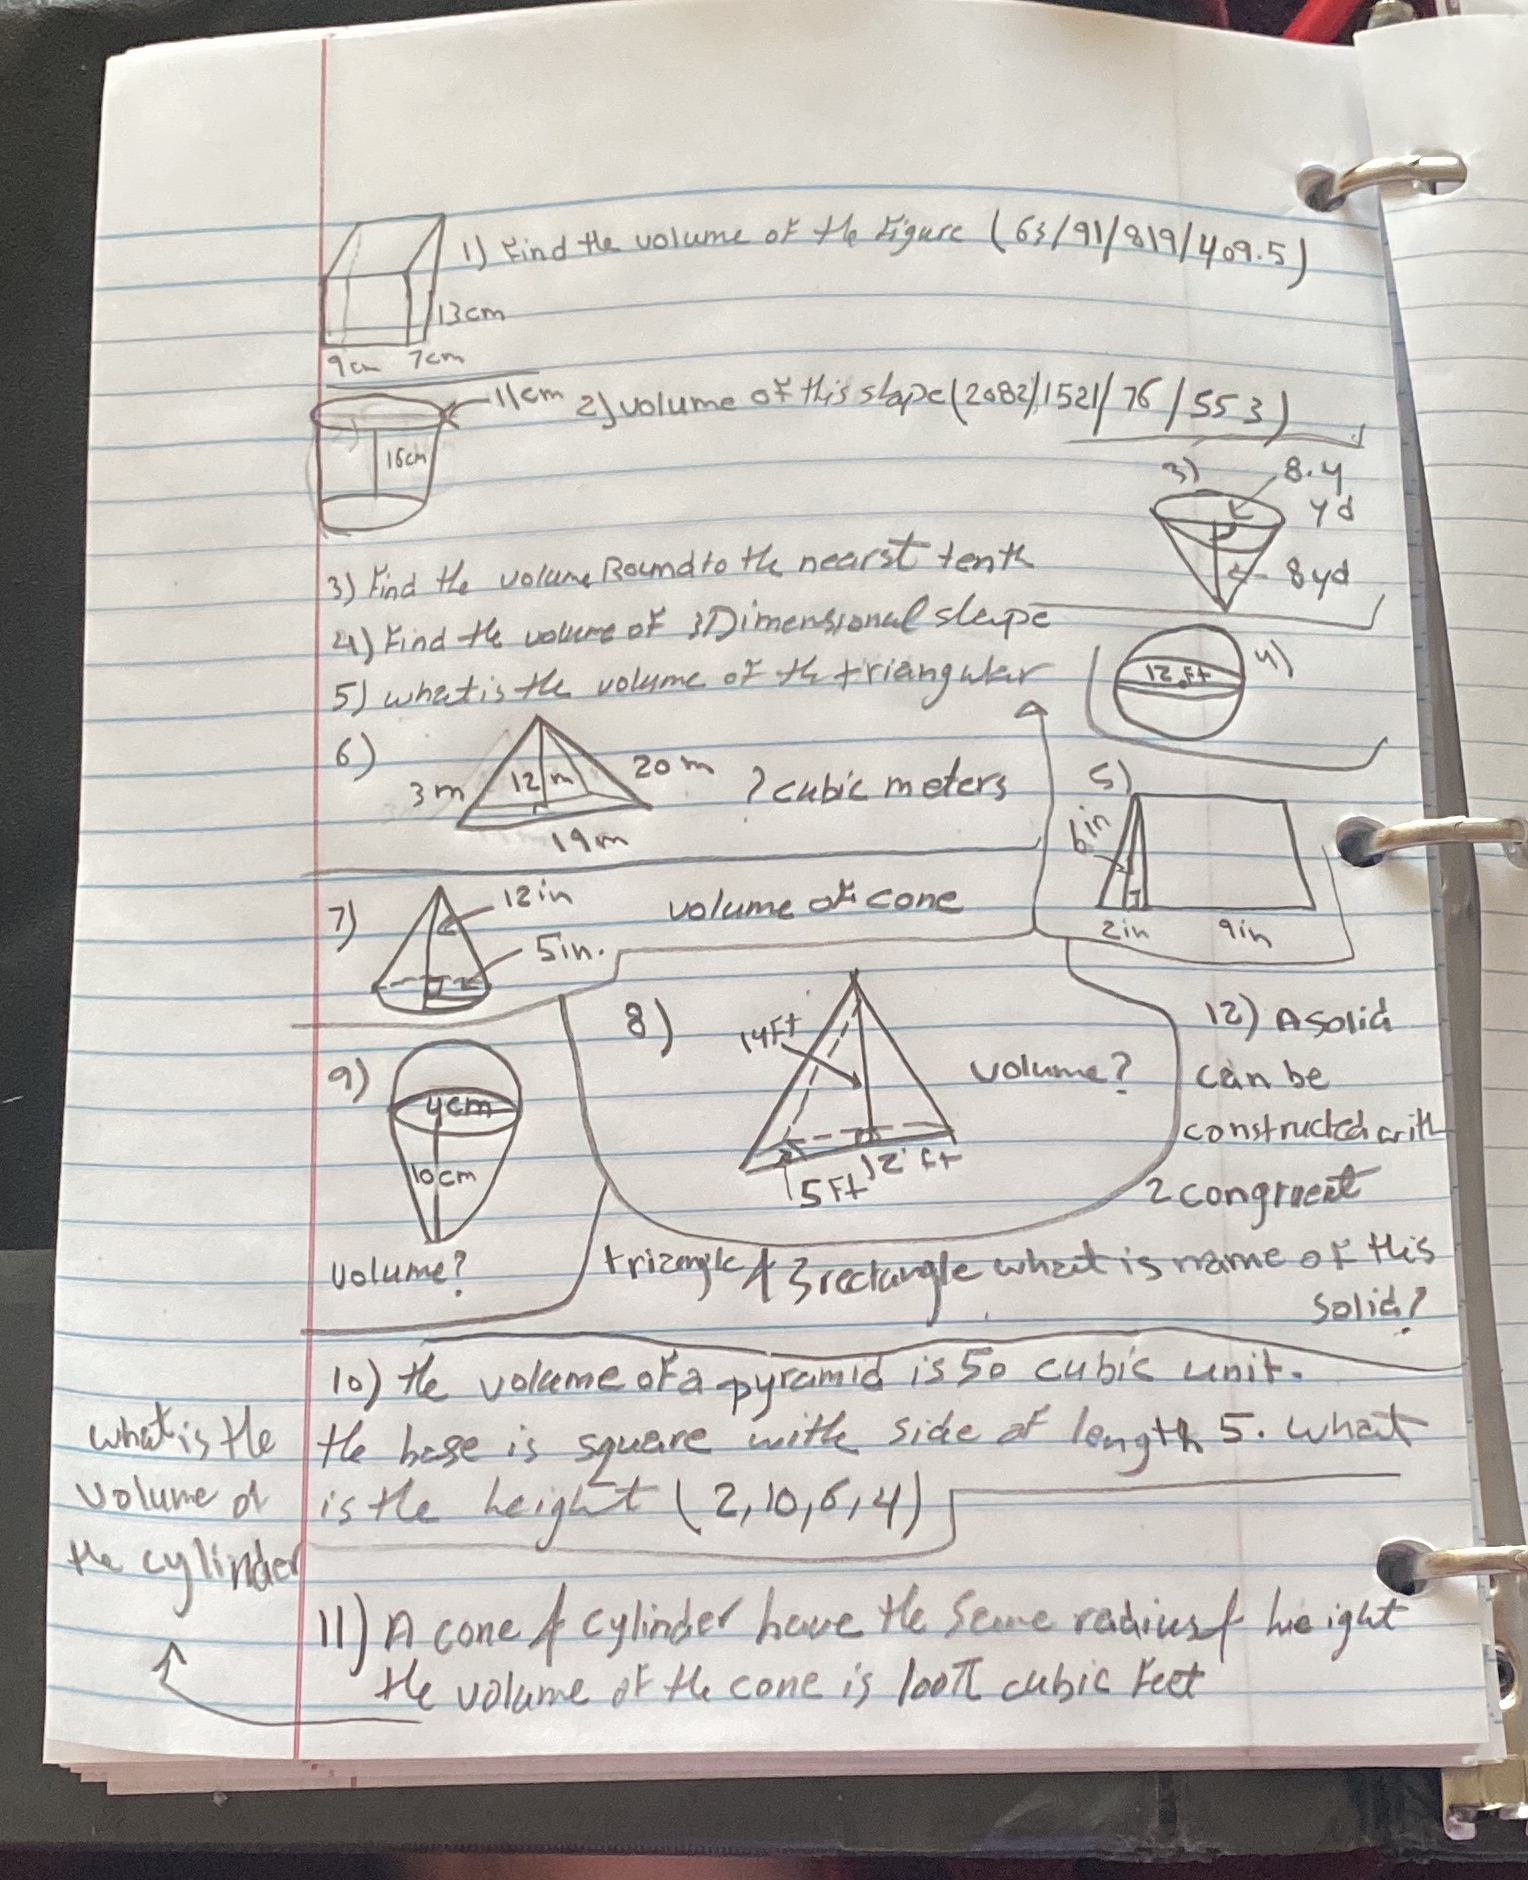 1) Find the volume of the Figure (63/91/819/409.5)
13cm
9cm 7cm
11cm 2) volume of this shape (2082/1521/76/553)
16cm
3) 8.4
yd
8yd
3) Find the volume Round to the nearst tenth
4) Find the volume of 3Dimensional shape
12 ft 4)
5) what is the volume of the triangular
6) 3m 12 m 20 m ? cubic meters
19m
5)
6in
2in 9in
7) 12in volume of cone
5in.
8) 14Ft volume?
12 Ft
5 Ft
9) 4cm
10cm
volume?
12) A solid
can be
constructed with
2 congruent
triangle & 3 rectangle what is name of this
solid?
10) the volume of a pyramid is 50 cubic unit.
the base is square with side of length 5. what
is the height (2,10,6,4)
11) A cone & cylinder have the same radius & hieight
the volume of the cone is 100π cubic Feet
what is the
volume of
the cylinder